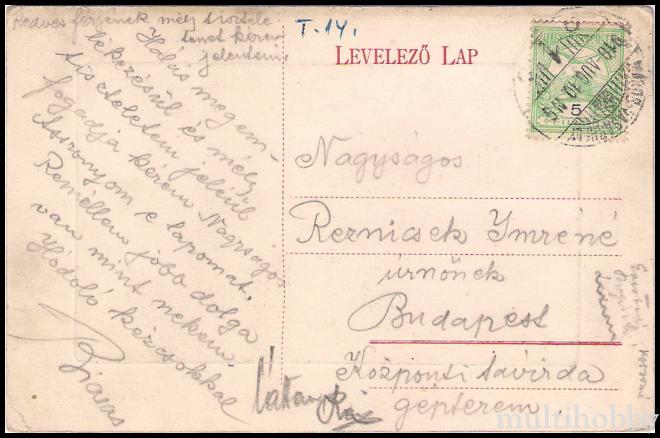 Kedves férjének mély tisztele-
temet kérem
jelenteni.
T. 14.
LEVELEZŐ LAP
5
Hálás megem-
lékezésül és mély
tiszteletem jeléül
fogadja kérem Nagyságos
Asszonyom e lapomat.
Remélem jobb dolga
van mint nekem.
Hódoló kézcsókkal
Nagyságos
Reznicsek Imréné
úrnőnek
Budapest
Központi távirda
gépterem
multihobby